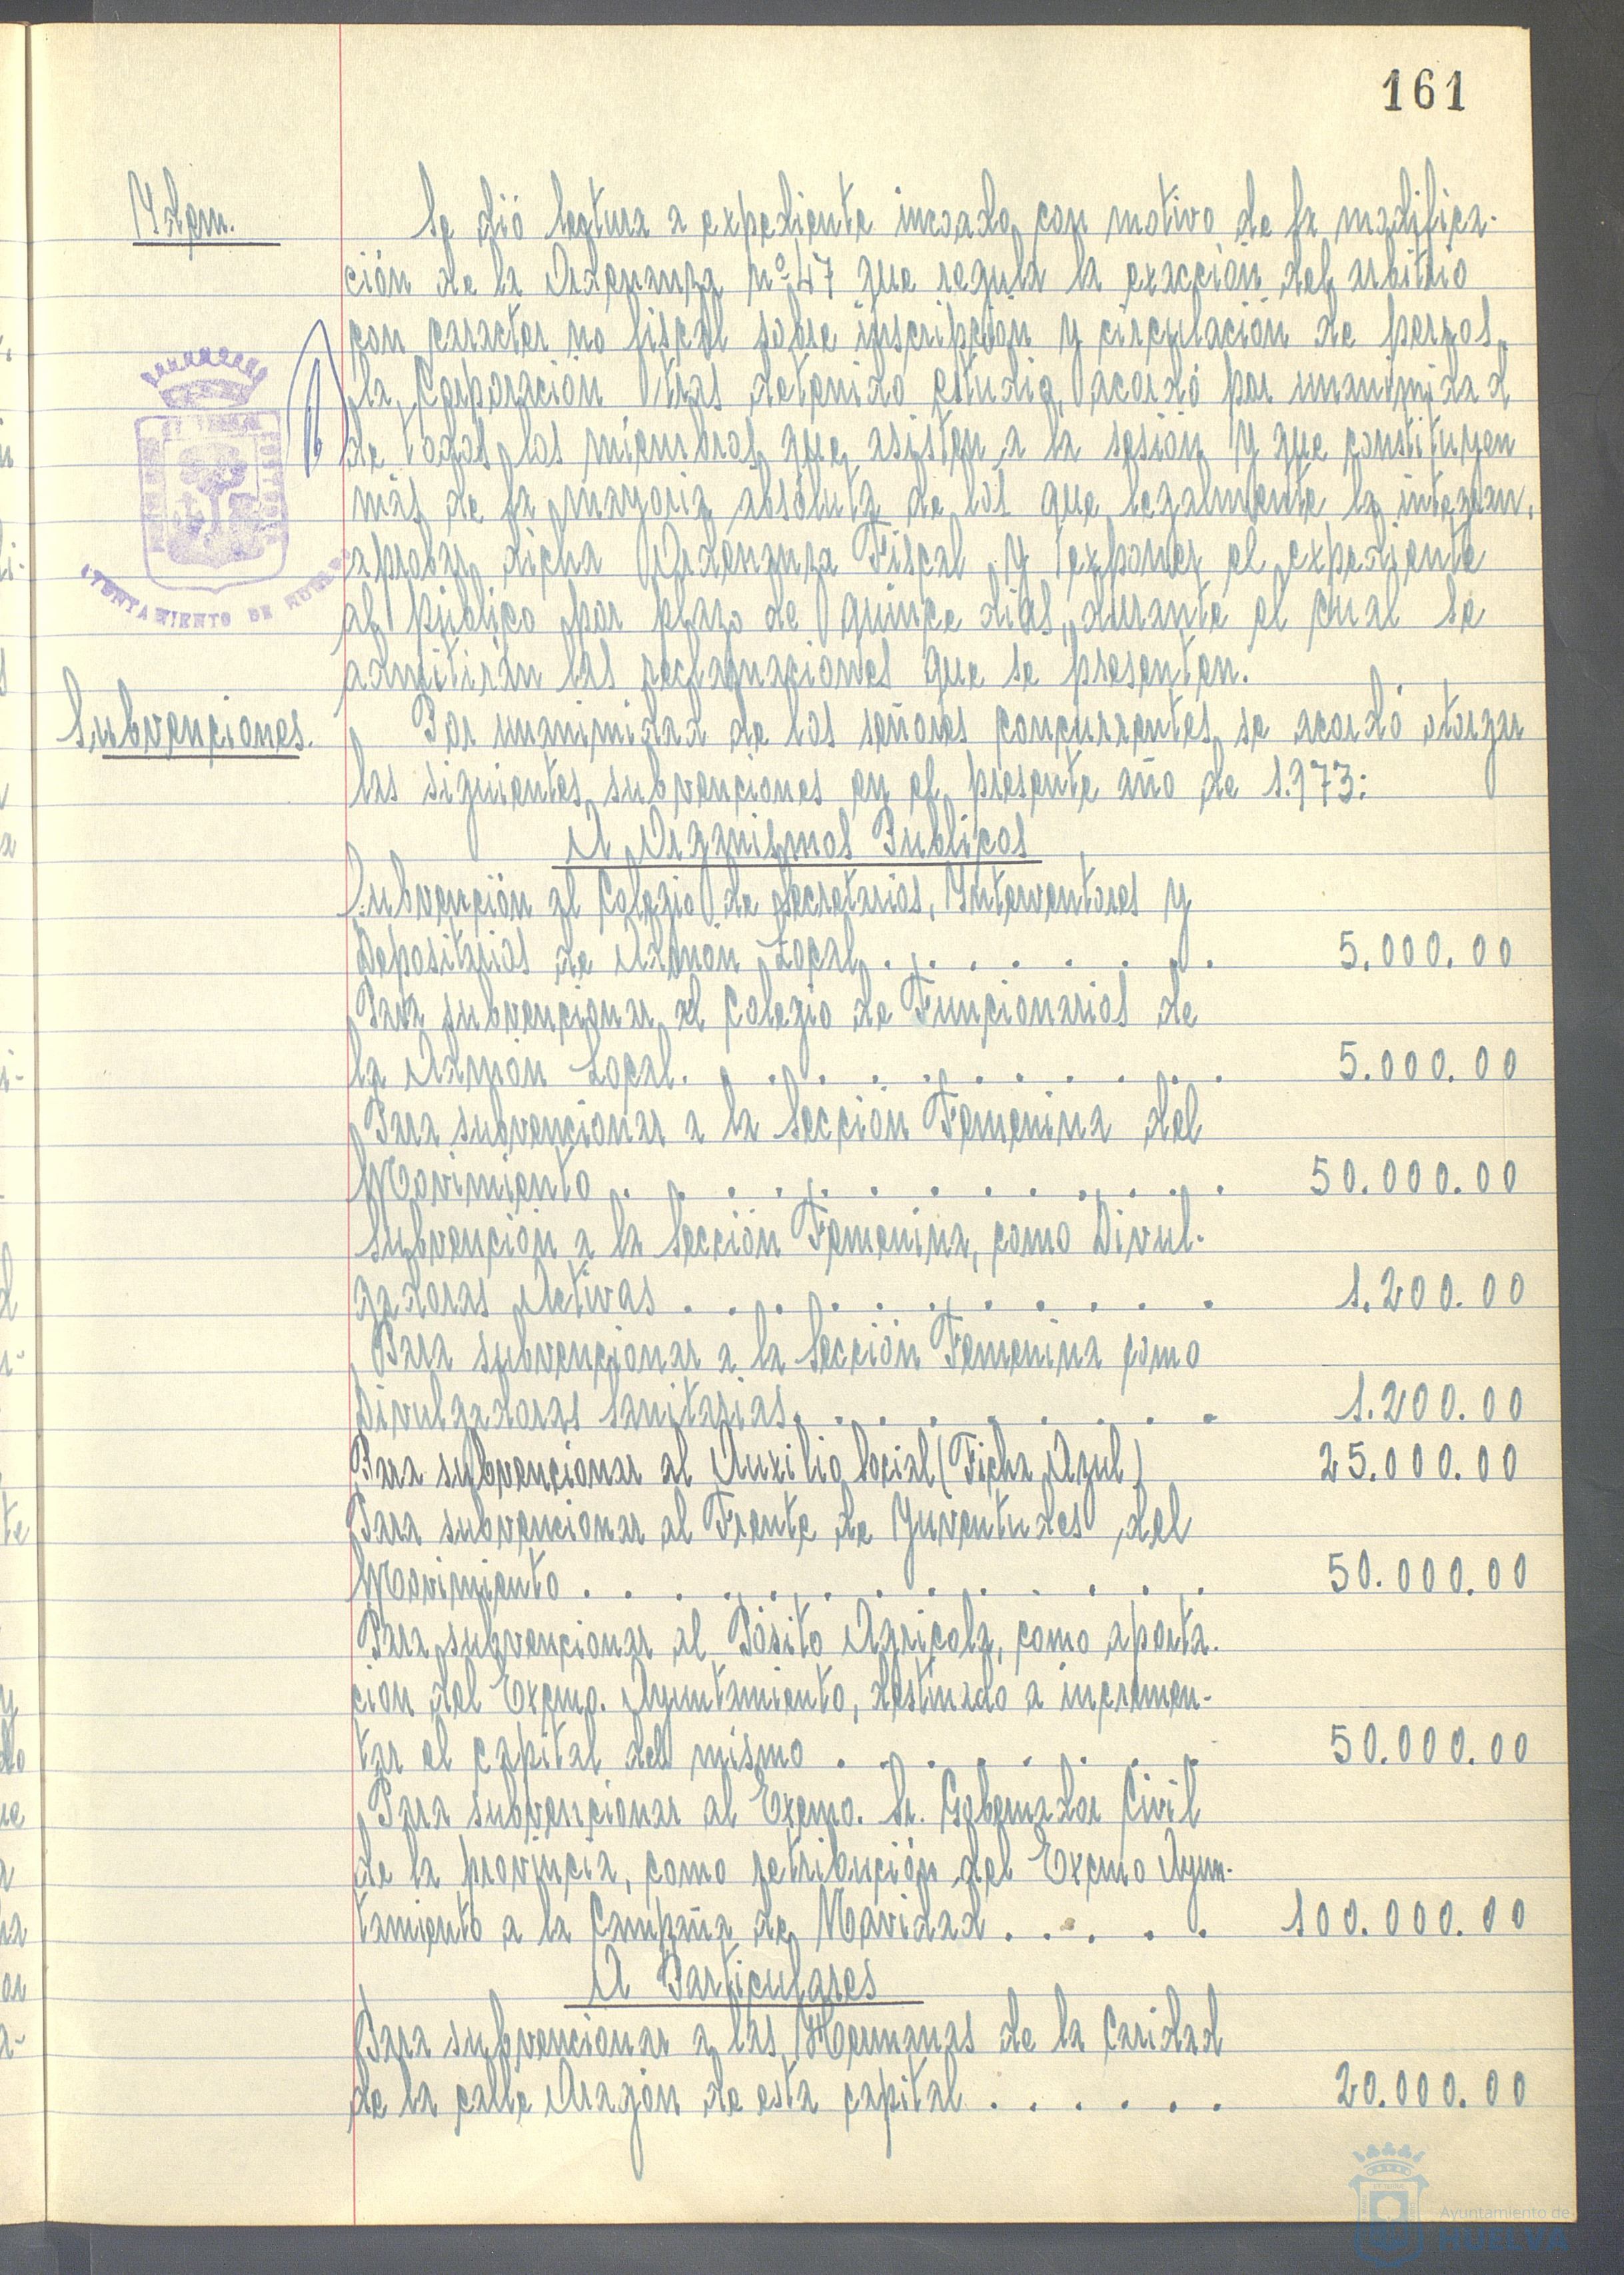 161
Ydem.
Se dió lectura a expediente incoado con motivo de la modifica-
ción de la Ordenanza nº 47 que regula la exacción del arbitrio
con caracter no fiscal sobre inscripción y circulación de perros,
la Corporación tras detenido estudio, acordó por unanimidad
de todos los miembros que asisten a la sesión y que constituyen
más de la mayoria absoluta de los que legalmente la integran,
aprobar dicha Ordenanza Fiscal y exponer el expediente
al público por plazo de quince dias, durante el cual se
admitirán las reclamaciones que se presenten.
AYUNTAMIENTO DE HUELVA
Subvenciones.
Por unanimidad de los señores concurrentes se acordó otorgar
las siguientes subvenciones en el presente año de 1.973:
A Organismos Publicos
Subvención al Colegio de Secretarios, Ynterventores y
Depositarios de Admón Local . . . . . . . . 5.000.00
Para subvencionar al Colegio de Funcionarios de
la Admón Local. . . . . . . . . . . . 5.000.00
Para subvencionar a la Sección Femenina del
Movimiento . . . . . . . . . . . . . 50.000.00
Subvención a la Sección Femenina, como Divul-
gadoras Activas . . . . . . . . . . . 1.200.00
Para subvencionar a la Sección Femenina como
Divulgadoras Sanitarias. . . . . . . . . 1.200.00
Para subvencionar al Auxilio Social (Ficha Azul) 25.000.00
Para subvencionar al Frente de Yuventudes del
Movimiento . . . . . . . . . . . . . 50.000.00
Para subvencionar al Pósito Agricola, como aporta-
cion del Excmo. Ayuntamiento, destinado a incremen-
tar el capital del mismo . . . . . . . . 50.000.00
Para subvencionar al Excmo. Sr. Gobernador Civil
de la provincia, como retribución del Excmo Ayun-
tamiento a la Campaña de Navidad . . . . . 100.000.00
A Particulares
Para subvencionar a las Hermanas de la Caridad
de la calle Aragón de esta capital . . . . . . 20.000.00
Ayuntamiento de
HUELVA